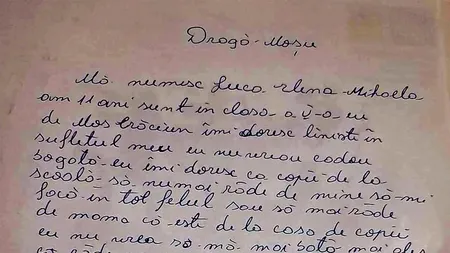 Dragă Moșu
Mă numesc Luca Elena-Mihaela
am 11 ani sunt în clasa a V-a eu
de Mos Crăciun îmi doresc liniste în
sufletul meu eu nu vreau cadou
bogată eu îmi doresc ca copii de la
scoală să numai râde de mine să-mi
facă in tot felul sau să mai râde
de mama că este de la casa de copii
eu nu vrea să mă mai bată mai ales